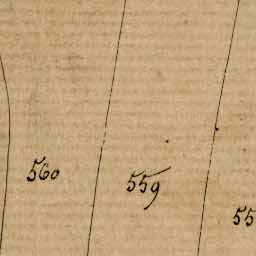 560
559
55